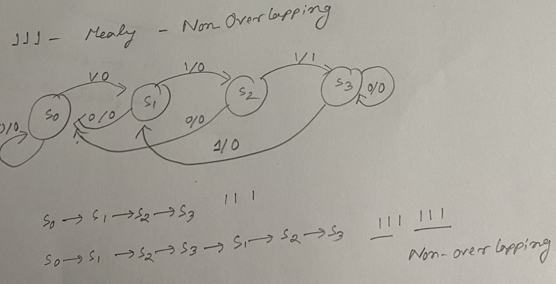 111 - Mealy - Non Overlapping
1/0 1/0 1/1
S0 S1 S2 S3
0/0 0/0 0/0 0/0
1/0
S0 → S1 → S2 → S3 111
S0 → S1 → S2 → S3 → S1 → S2 → S3 111 111
Non-overlapping